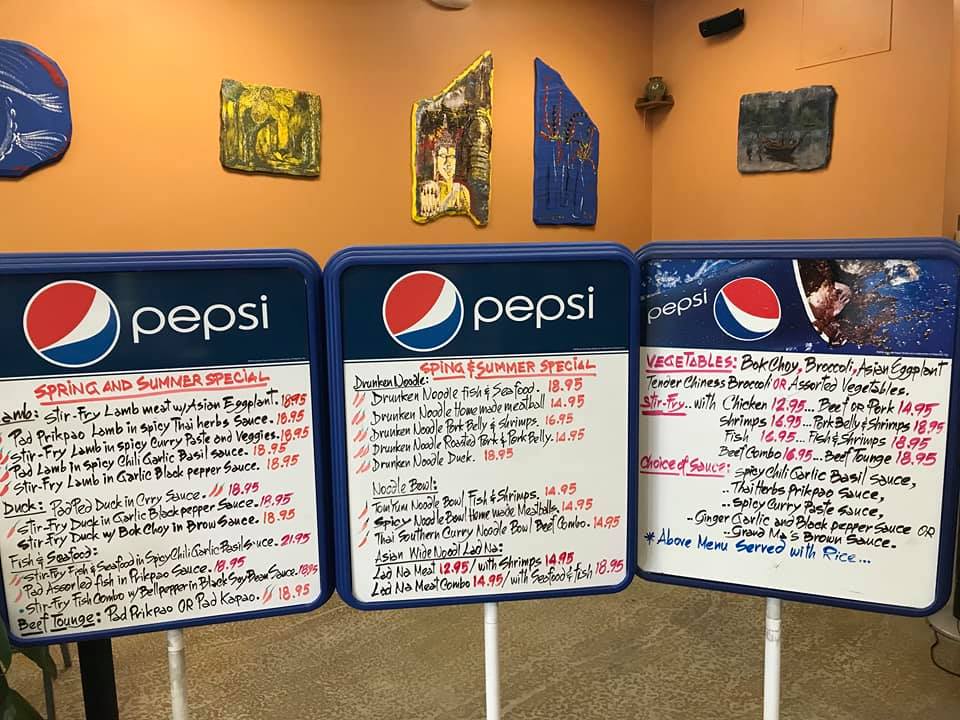 pepsi
SPRING AND SUMMER SPECIAL
Lamb: Stir-Fry Lamb meat w/Asian Eggplant. 18.95
Pad Prikpao Lamb in spicy Thai herbs Sauce. 18.95
Stir-Fry Lamb in spicy Curry Paste and Veggies. 18.95
Pad Lamb in Spicy Chili Garlic Basil sauce. 18.95
Stir-Fry Lamb in Garlic Black pepper Sauce. 18.95
Duck: Pad Ped Duck in Crry Sauce. 18.95
Stir-Fry Duck in Garlic Black pepper Sauce. 18.95
Stir-Fry Duck w/ Bok Choy in Brou Sauce. 18.95
Fish & Seafood:
Stir-Fry Fish & Seafood in Spicy Chili Garlic Basil suce. 21.95
Pad Assorted fish in Prikpao Sauce. 18.95
Stir-Fry Fish Combo w/ Bellpepper in Black Soy Bean Sauce. 18.95
Beef Tounge: Pad Prikpao OR Pad Kapao. 18.95
pepsi
SPING & SUMMER SPECIAL
Drunken Noodle:
Drunken Noodle fish & Seafood. 18.95
Drunken Noodle Home made meatball 14.95
Drunken Noodle Pork Belly & Shrimps. 16.95
Drunken Noodle Roasted Pork & Pork Belly. 14.95
Drunken Noodle Duck. 18.95
Noodle Bowl:
Tom Yum Noodle Bowl Fish & Shrimps. 14.95
Spicy Noodle Bowl Home made Meatballs. 14.95
Thai Southern Curry Noodle Bowl Beef Combo. 14.95
Asian Wide Noodl Lad Na:
Lad Na Meat 12.95 / with Shrimps 14.95
Lad Na Meat Combo 14.95 / with Seafood & fish 18.95
pepsi
VEGETABLES: Bok Choy, Broccoli, Asian Eggplant
Tender Chiness Broccoli OR Assorted Vegetables.
Stir-Fry.. with Chicken 12.95... Beef OR Pork 14.95
Shrimps 16.95... Pork Belly & Shrimps 18.95
Fish 16.95... Fish & Shrimps 18.95
Beef Combo 16.95... Beef Tounge 18.95
Choice of Sauce: Spicy Chili Garlic Basil sauce,
... Thai Herbs Prikpao Sauce,
... Spicy Curry Paste sauce,
... Ginger Garlic and Black pepper Sauce OR
... Grand Ma's Brown Sauce.
* Above Menu Served with Rice...